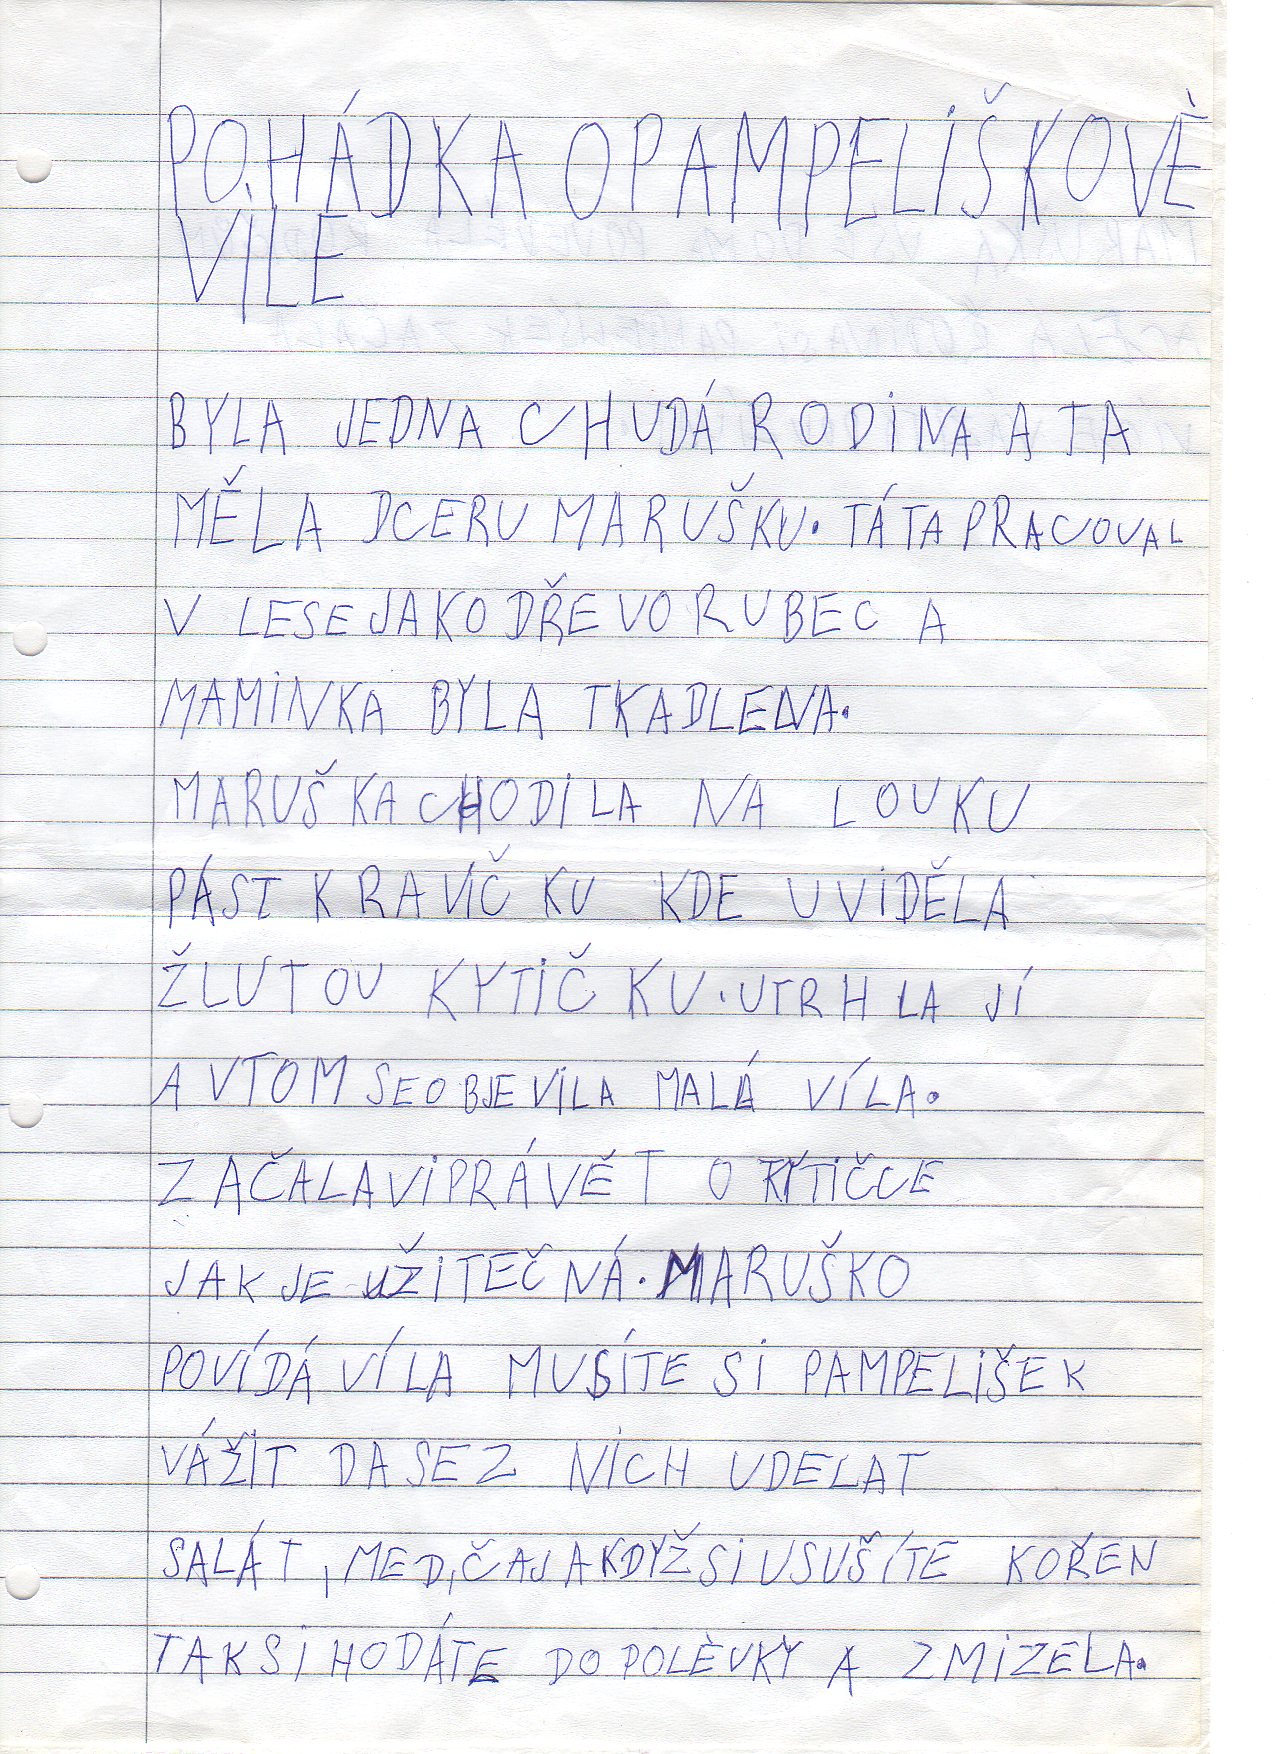 POHÁDKA O PAMPELIŠKOVÈ
VILE
BYLA JEDNA CHUDÁ RODINA A TA
MĚLA DCERU MARUŠKU. TÁTA PRACOVAL
V LESE JAKO DŘEVORUBEC A
MAMINKA BYLA TKADLENA.
MARUŠKA CHODILA NA LOUKU
PÁST KRAVIČKU KDE UVIDĚLA
ŽLUTOU KYTIČKU. UTRHLA JÍ
A VTOM SE OBJEVILA MALÁ VÍLA.
ZAČALA VIPRÁVĚT O KYTIČCE
JAK JE UŽITEČNÁ. MARUŠKO
POVÍDÁ VÍLA MUSÍTE SI PAMPELIŠEK
VÁŽIT DA SE Z NICH UDELAT
SALÁT, MED, ČAJ A KDYŽ SI USUŠÍTE KOŘEN
TAK SI HODÁTE DO POLÈVKY A ZMIZELA.